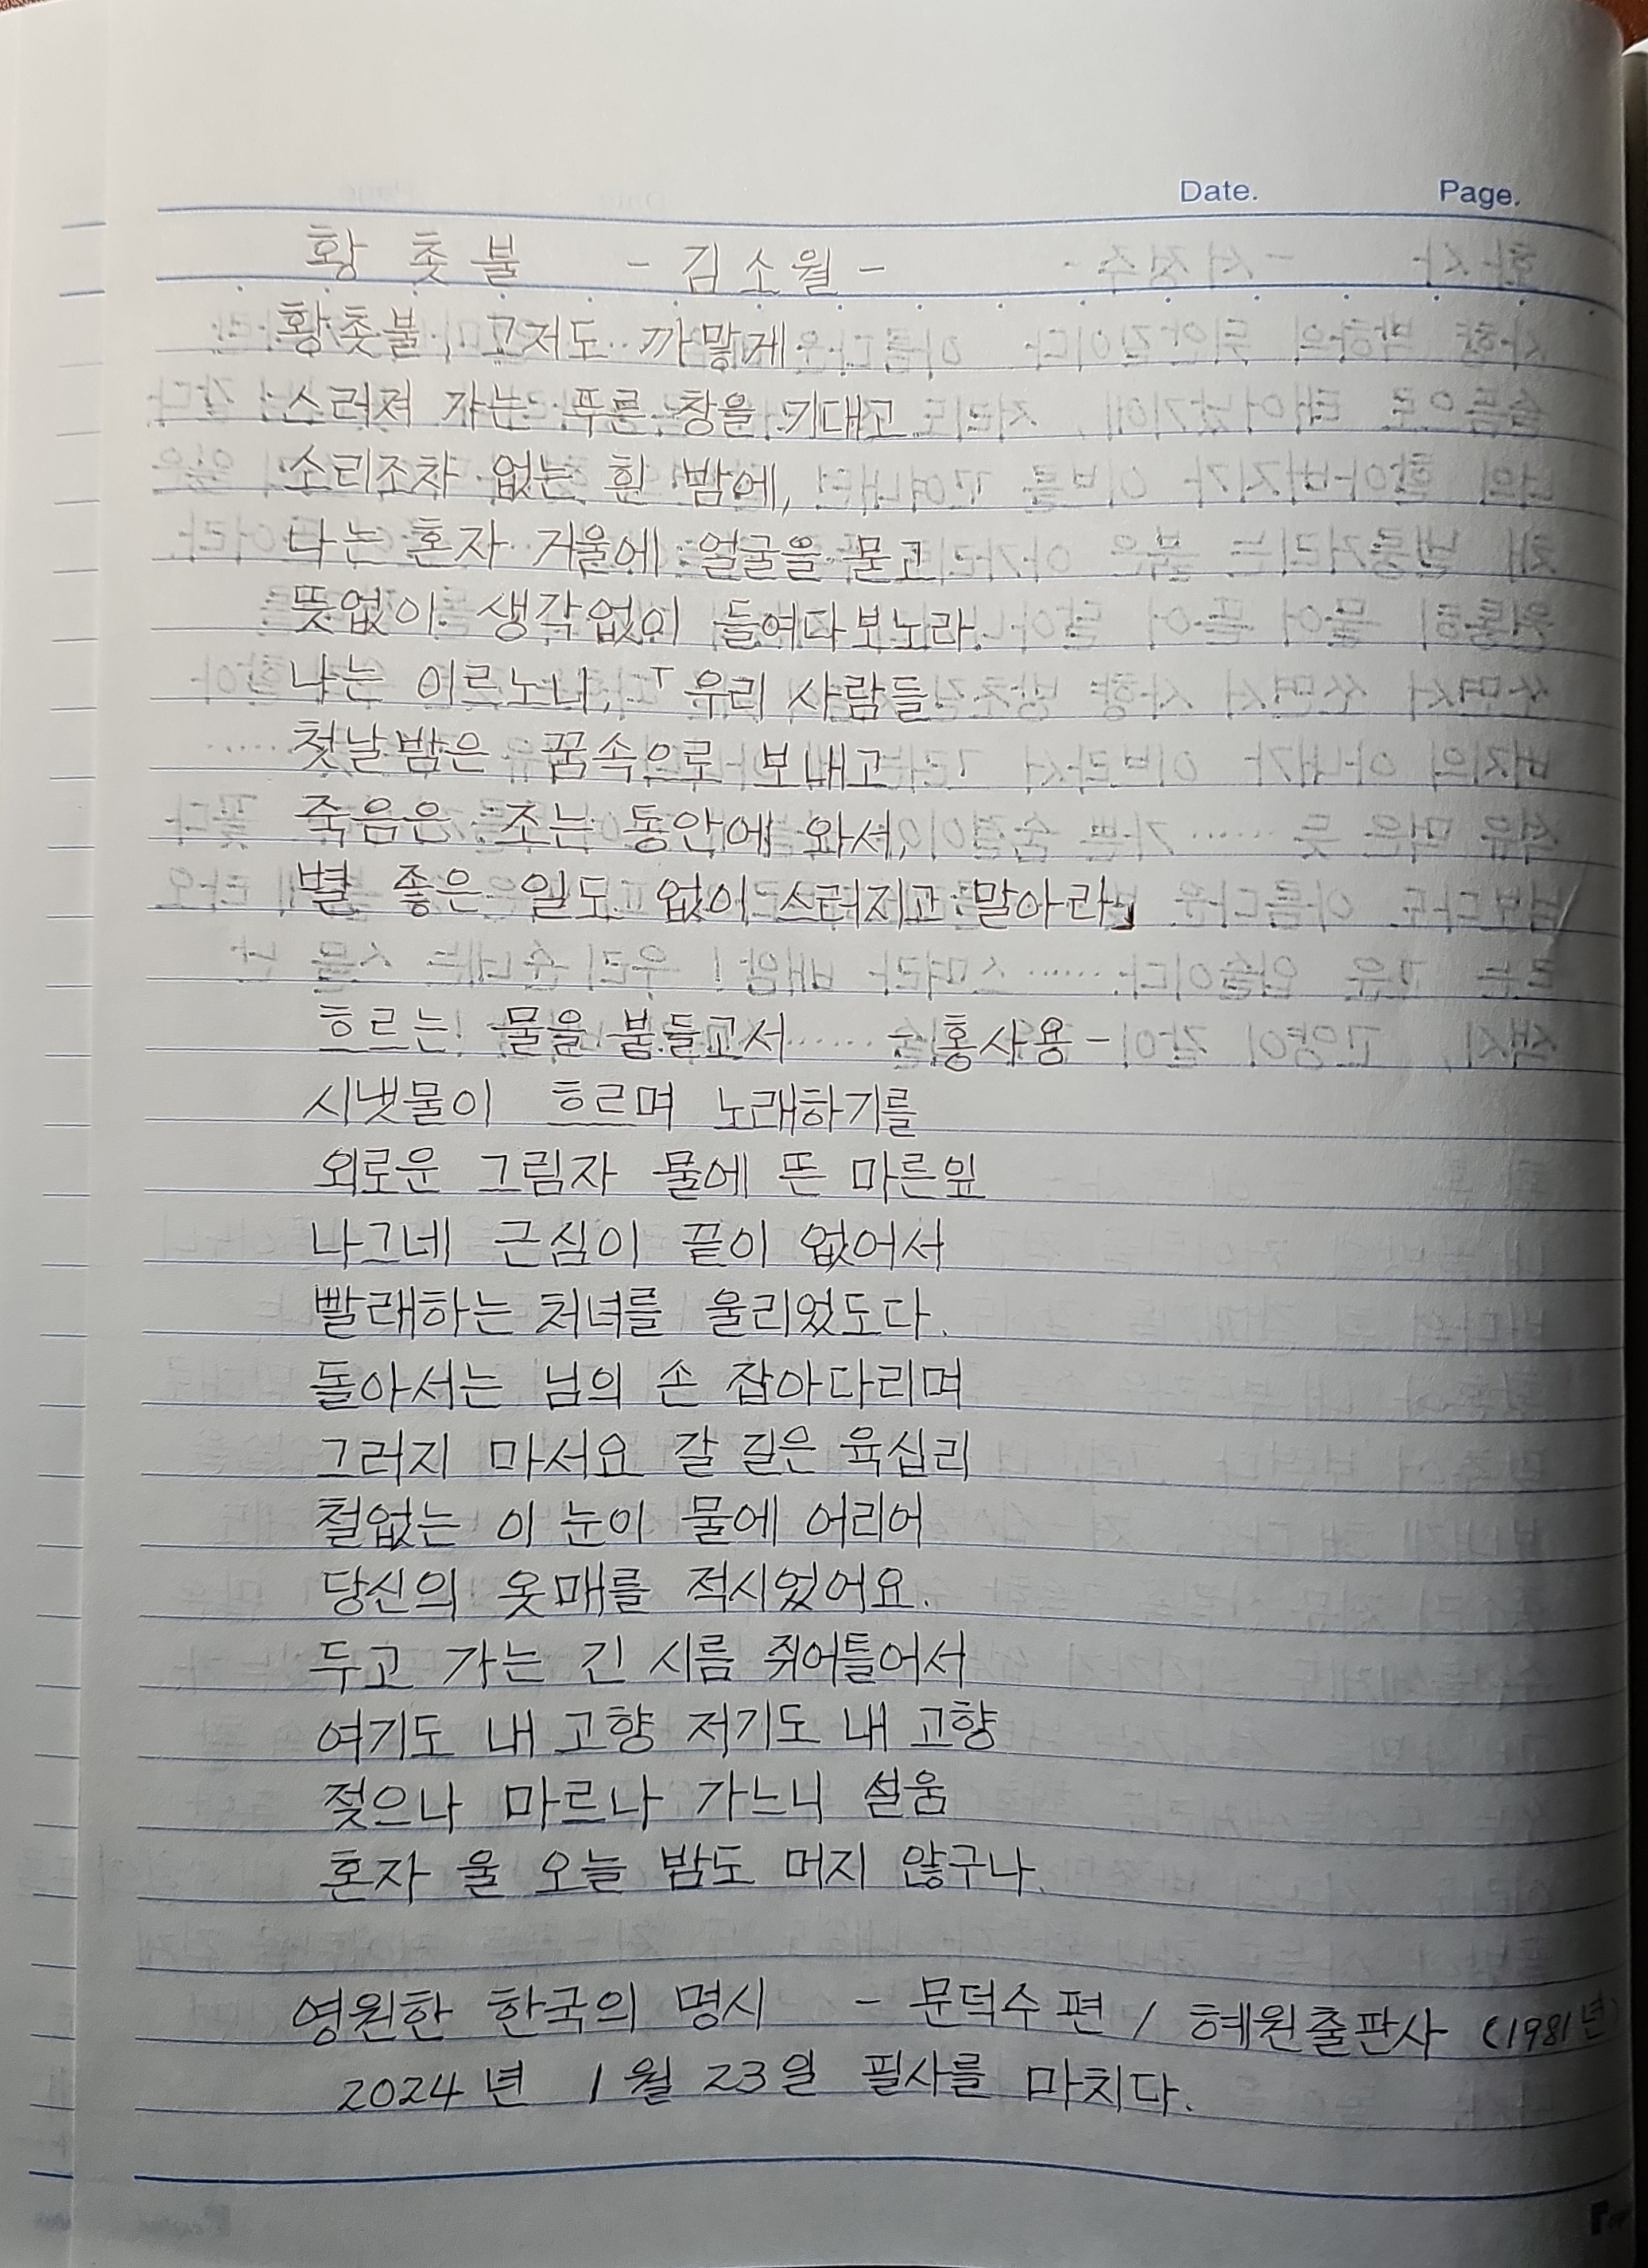 Date. Page.
황 촛 불 - 김소월 -
황촛불, 그저도 까맣게
스러져 가는 푸른 창을 기대고
소리조차 없는 흰 밤에,
나는 혼자 거울에 얼굴을 묻고
뜻없이 생각없이 들여다보노라.
나는 이르노니, 「우리 사람들
첫날밤은 꿈속으로 보내고
죽음은 조는 동안에 와서,
별 좋은 일도 없이 스러지고 말아라」
흐르는 물을 붙들고서 - 홍사용 -
시냇물이 흐르며 노래하기를
외로운 그림자 물에 뜬 마른잎
나그네 근심이 끝이 없어서
빨래하는 처녀를 울리었도다.
돌아서는 님의 손 잡아다리며
그러지 마서요 갈 길은 육십리
철없는 이 눈이 물에 어리어
당신의 옷매를 적시었어요.
두고 가는 긴 시름 쥐어틀어서
여기도 내 고향 저기도 내 고향
젖으나 마르나 가느니 설움
혼자 울 오늘 밤도 머지 않구나.
영원한 한국의 명시 - 문덕수 편 / 혜원출판사 (1981년)
2024년 1월 23일 필사를 마치다.